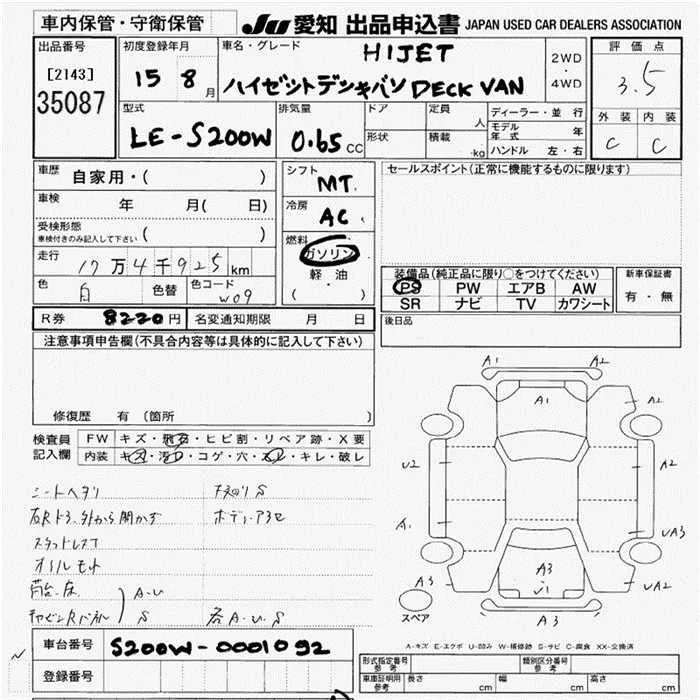 車内保管・守衛保管
JU 愛知 出品申込書 JAPAN USED CAR DEALERS ASSOCIATION
出品番号
[2143]
35087
初度登録年月
15 8月
車名・グレード
HIJET
ハイゼットデッキバン DECK VAN
2WD
・
4WD
評価点
3.5
外装 内装
C C
型式
LE-S200W
排気量
0.65 CC
ドア
形状
定員 人
積載 -kg
ディーラー・並行
モデル年式 年
ハンドル 左・右
車歴 自家用・( )
車検 年 月( 日)
受検形態
車検付きのみ記入して下さい ( )
走行 17万4千925km
色 白 色替 色コード W09
シフト MT
冷房 AC
燃料 ガソリン
軽・油
( )
セールスポイント(正常に機能するものに限ります)
装備品(純正品に限り○をつけてください)
PS PW エアB AW
SR ナビ TV カワシート
新車保証書
有・無
R券 8220円 名変通知期限 月 日
後日品
注意事項申告欄(不具合内容等は具体的に記入して下さい)
修復歴 有 〔箇所
検査員
記入欄
FW キズ・飛石・ヒビ割・リペア跡・X要
内装 キズ・汚レ・コゲ・穴・スレ・キレ・破レ
シートヘタリ
右Rドア外から開かず
スタッドレス
オイルモレ
荷台、床
A・U
S
ボディ
各A・U・S
A1 A2
A1 A2
U2 A2
A1 UA3
A3 A3 UA2
U1
A3
スペア
A-キズ E-エクボ U-凹み W-補修跡 S-サビ C-腐食 XX-交換済
車台番号 S200W-0001092
登録番号
形式指定番号
参考
類別区分番号
参考
車庫証明用
参考
長さ cm 幅 cm 高さ cm